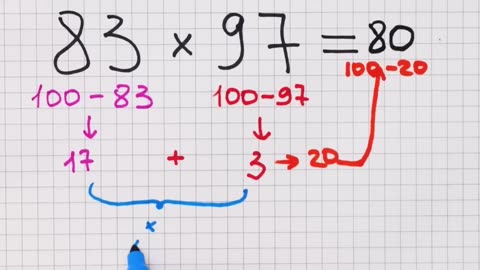 83 × 97 = 80
100-20
100-83 100-97
↓ ↓
17 + 3 → 20
×